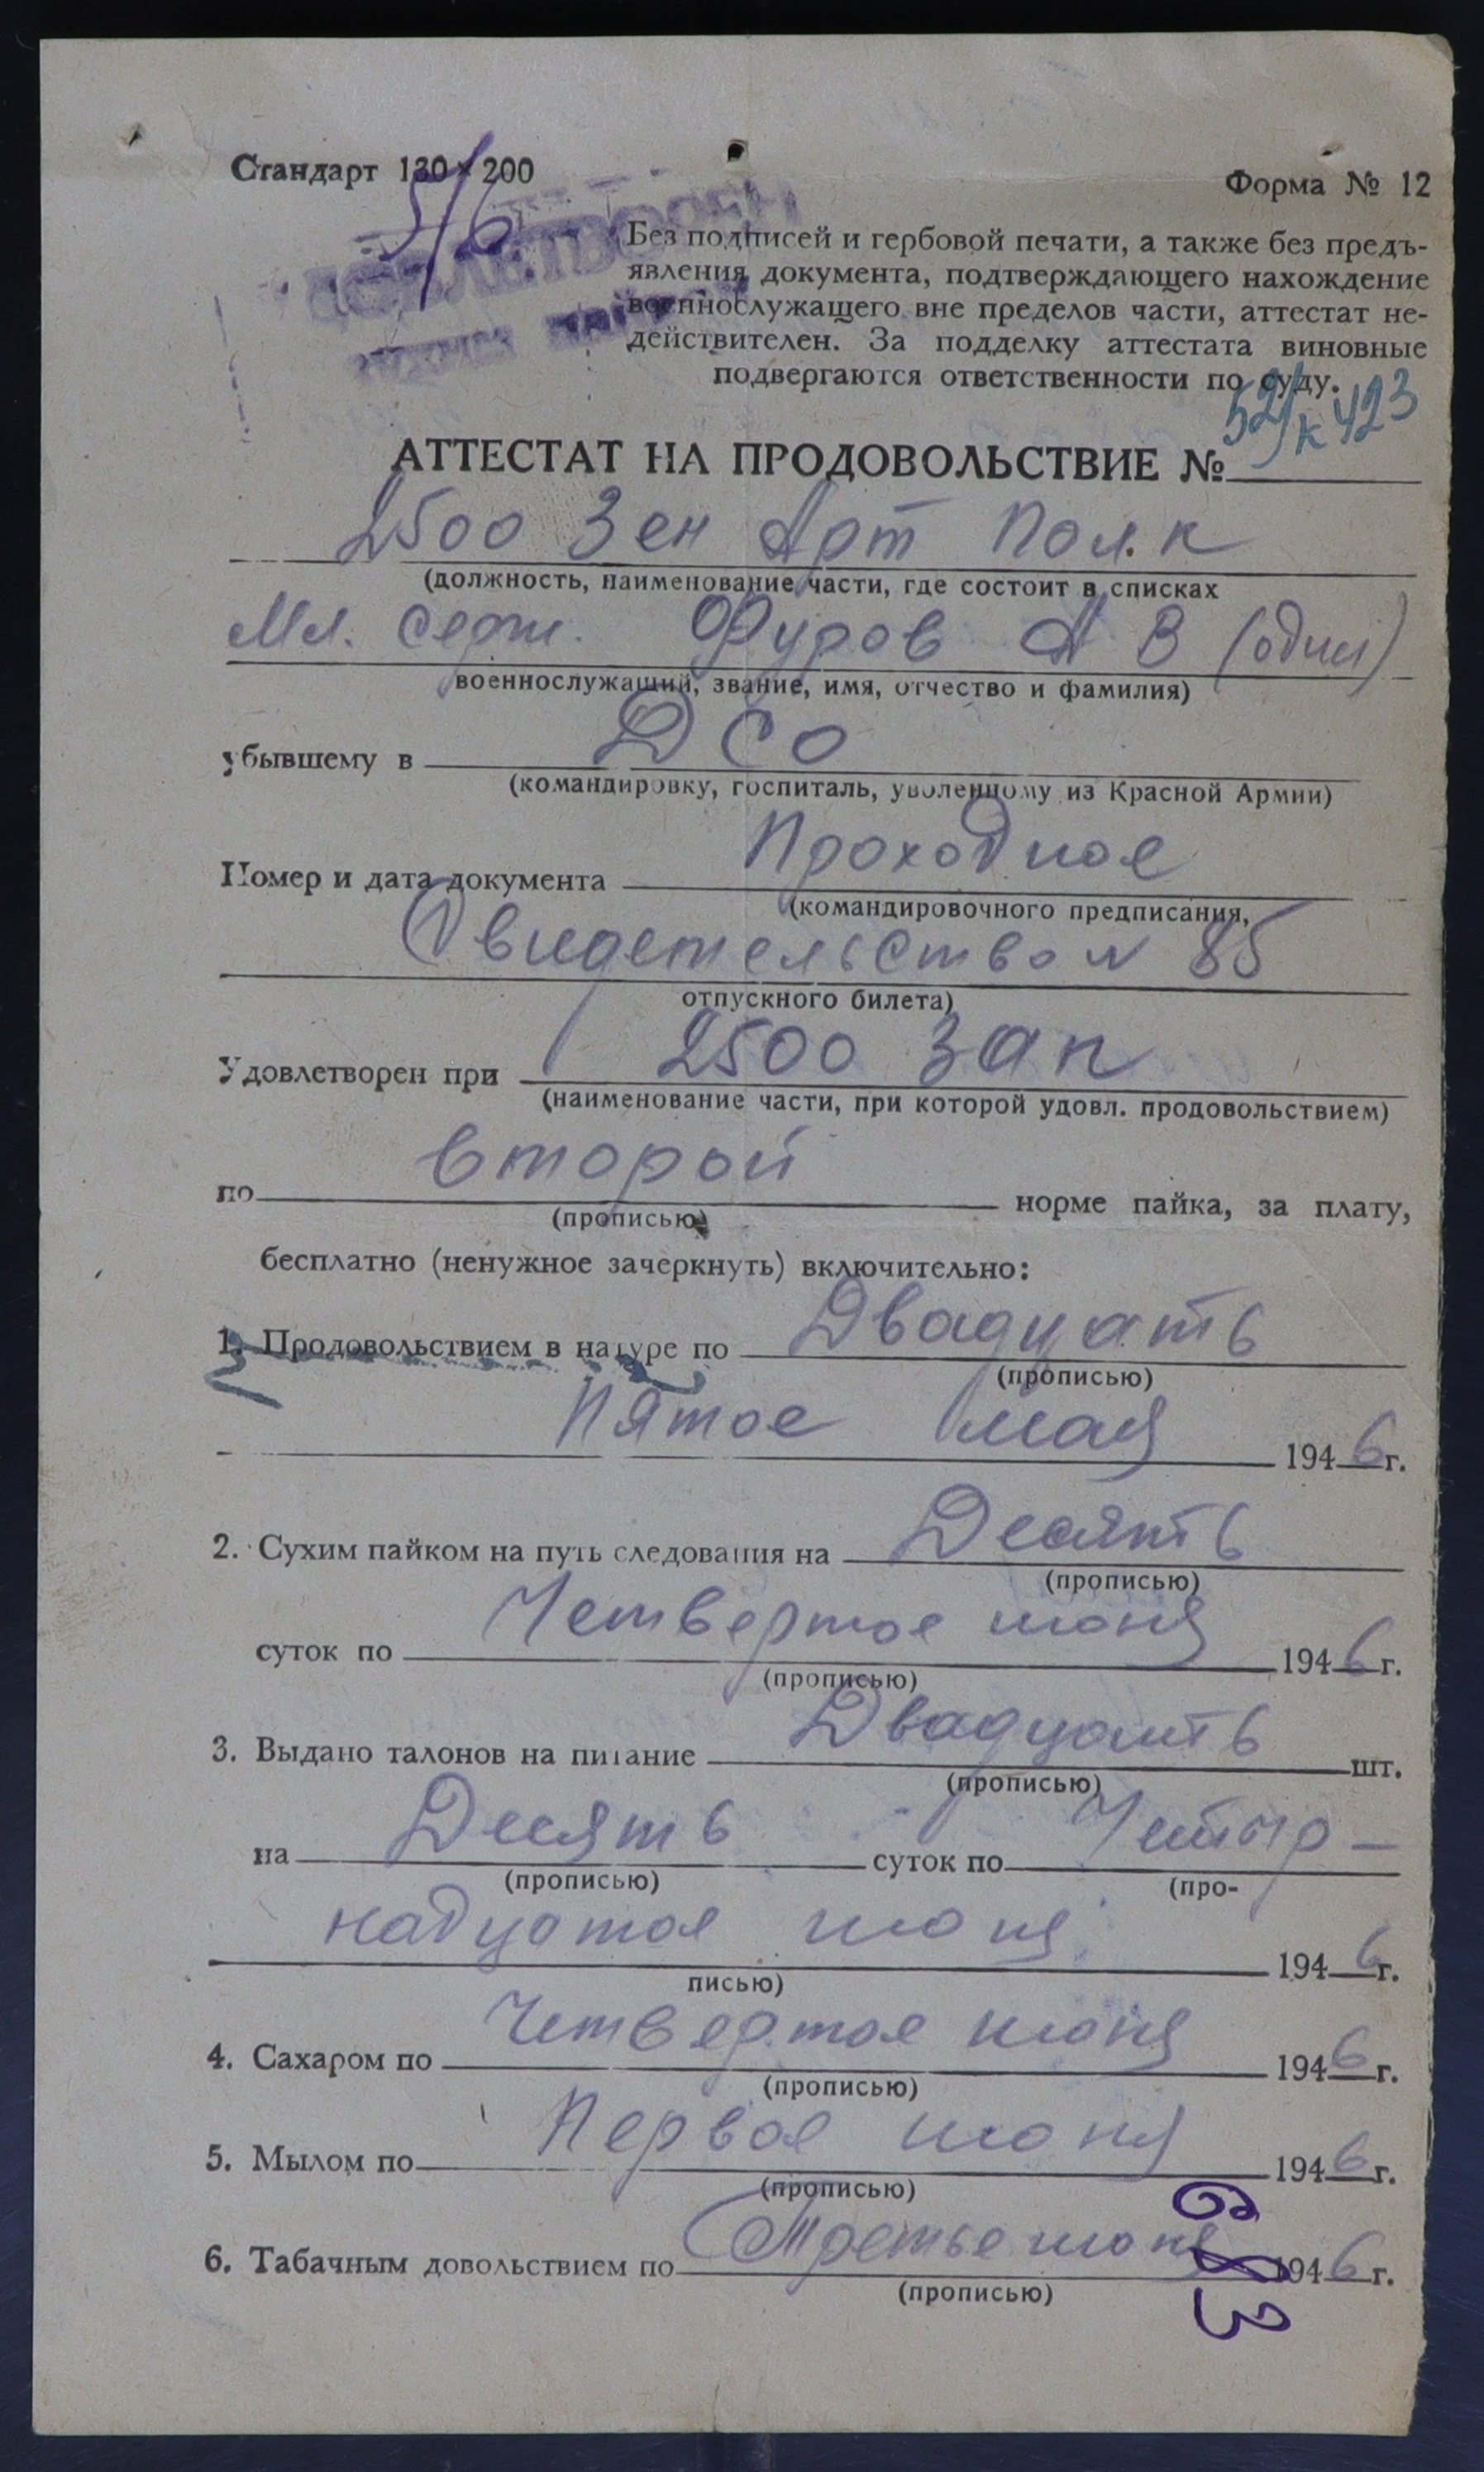 Стандарт 130×200
Форма № 12
5/6
Без подписей и гербовой печати, а также без предъ-
явления документа, подтверждающего нахождение
военнослужащего вне пределов части, аттестат не-
действителен. За подделку аттестата виновные
подвергаются ответственности по суду.
АТТЕСТАТ НА ПРОДОВОЛЬСТВИЕ № 52/к 423
2500 Зен Арт Полк
(должность, наименование части, где состоит в списках
Мл. серж. Фуров А В (один)
военнослужащий, звание, имя, отчество и фамилия)
убывшему в ДСО
(командировку, госпиталь, уволенному из Красной Армии)
Номер и дата документа Проходное
(командировочного предписания,
Свидетельство N 85
отпускного билета)
Удовлетворен при 2500 Зап
(наименование части, при которой удовл. продовольствием)
по второй норме пайка, за плату,
(прописью)
бесплатно (ненужное зачеркнуть) включительно:
1. Продовольствием в натуре по Двадцать
(прописью)
Пятое мая 1946 г.
2. Сухим пайком на путь следования на Десять
(прописью)
суток по Четвертое июня 1946 г.
(прописью)
3. Выдано талонов на питание Двадцать шт.
(прописью)
на Десять суток по Четыр-
(прописью) (про-
надцатое июня 1946 г.
писью)
4. Сахаром по Четвертое июня 1946 г.
(прописью)
5. Мылом по Первое июня 1946 г.
(прописью)
6. Табачным довольствием по Третье июня 1946 г.
(прописью)